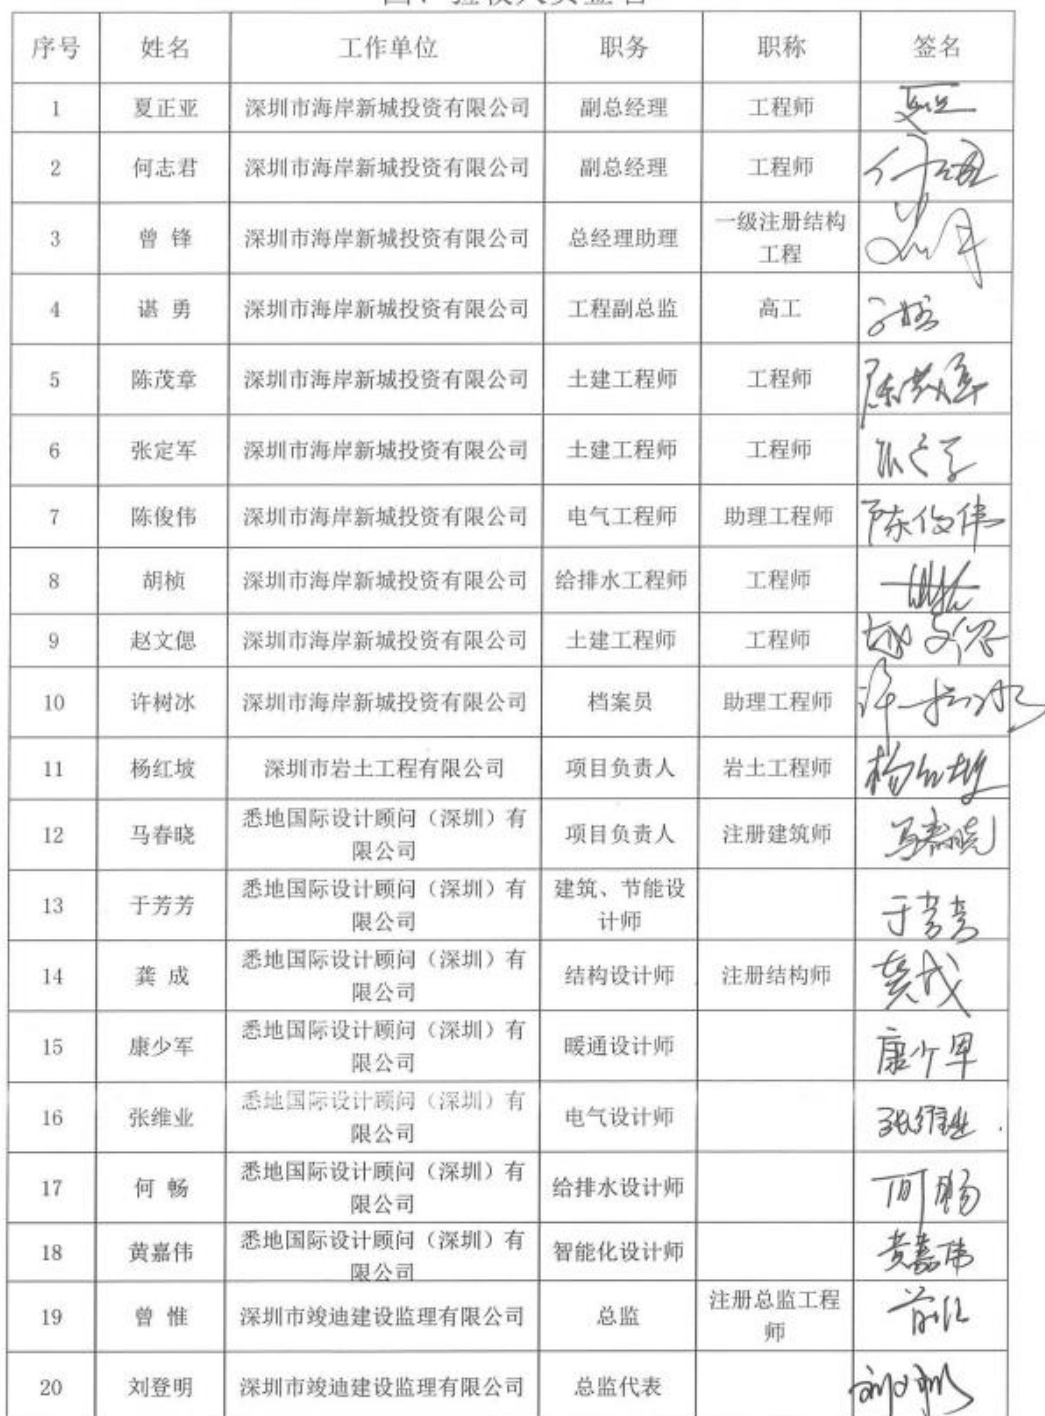 四、验收人员签名
序号 姓名 工作单位 职务 职称 签名
1 夏正亚 深圳市海岸新城投资有限公司 副总经理 工程师
2 何志君 深圳市海岸新城投资有限公司 副总经理 工程师
3 曾 锋 深圳市海岸新城投资有限公司 总经理助理 一级注册结构
工程
4 谌 勇 深圳市海岸新城投资有限公司 工程副总监 高工
5 陈茂章 深圳市海岸新城投资有限公司 土建工程师 工程师 陈茂章
6 张定军 深圳市海岸新城投资有限公司 土建工程师 工程师
7 陈俊伟 深圳市海岸新城投资有限公司 电气工程师 助理工程师 陈俊伟
8 胡桢 深圳市海岸新城投资有限公司 给排水工程师 工程师
9 赵文偲 深圳市海岸新城投资有限公司 土建工程师 工程师 赵文偲
10 许树冰 深圳市海岸新城投资有限公司 档案员 助理工程师 许树冰
11 杨红坡 深圳市岩土工程有限公司 项目负责人 岩土工程师 杨红坡
12 马春晓 悉地国际设计顾问（深圳）有
限公司 项目负责人 注册建筑师 马春晓
13 于芳芳 悉地国际设计顾问（深圳）有
限公司 建筑、节能设
计师 于芳芳
14 龚 成 悉地国际设计顾问（深圳）有
限公司 结构设计师 注册结构师 龚成
15 康少军 悉地国际设计顾问（深圳）有
限公司 暖通设计师 康少军
16 张维业 悉地国际设计顾问（深圳）有
限公司 电气设计师 张维业
17 何 畅 悉地国际设计顾问（深圳）有
限公司 给排水设计师 何畅
18 黄嘉伟 悉地国际设计顾问（深圳）有
限公司 智能化设计师 黄嘉伟
19 曾 惟 深圳市竣迪建设监理有限公司 总监 注册总监工程
师
20 刘登明 深圳市竣迪建设监理有限公司 总监代表